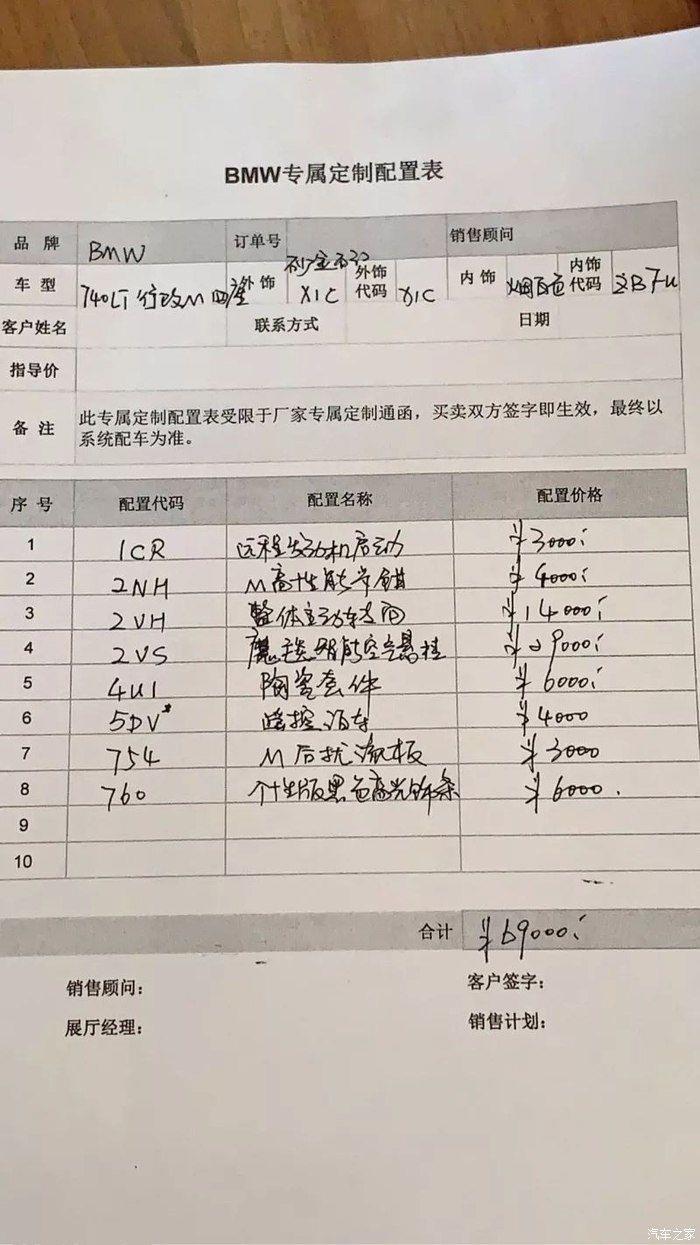 BMW专属定制配置表
品 牌 BMW 订单号 销售顾问
车 型 740Li 行政M 四座 外饰 X1C 外饰代码 X1C 内饰 烟白色 内饰代码 ZBFU
客户姓名 联系方式 日期
指导价
备 注 此专属定制配置表受限于厂家专属定制通函，买卖双方签字即生效，最终以
系统配车为准。
序 号 配置代码 配置名称 配置价格
1 1CR 远程发动机启动 ¥3000
2 2NH M高性能卡钳 ¥4000
3 2VH 整体主动转向 ¥14000
4 2VS 魔毯智能空气悬挂 ¥29000
5 4U1 陶瓷套件 ¥6000
6 5DV* 遥控泊车 ¥4000
7 754 M后扰流板 ¥3000
8 760 个性版黑色高光饰条 ¥6000.
9
10
合计 ¥69000
销售顾问： 客户签字：
展厅经理： 销售计划：
汽车之家